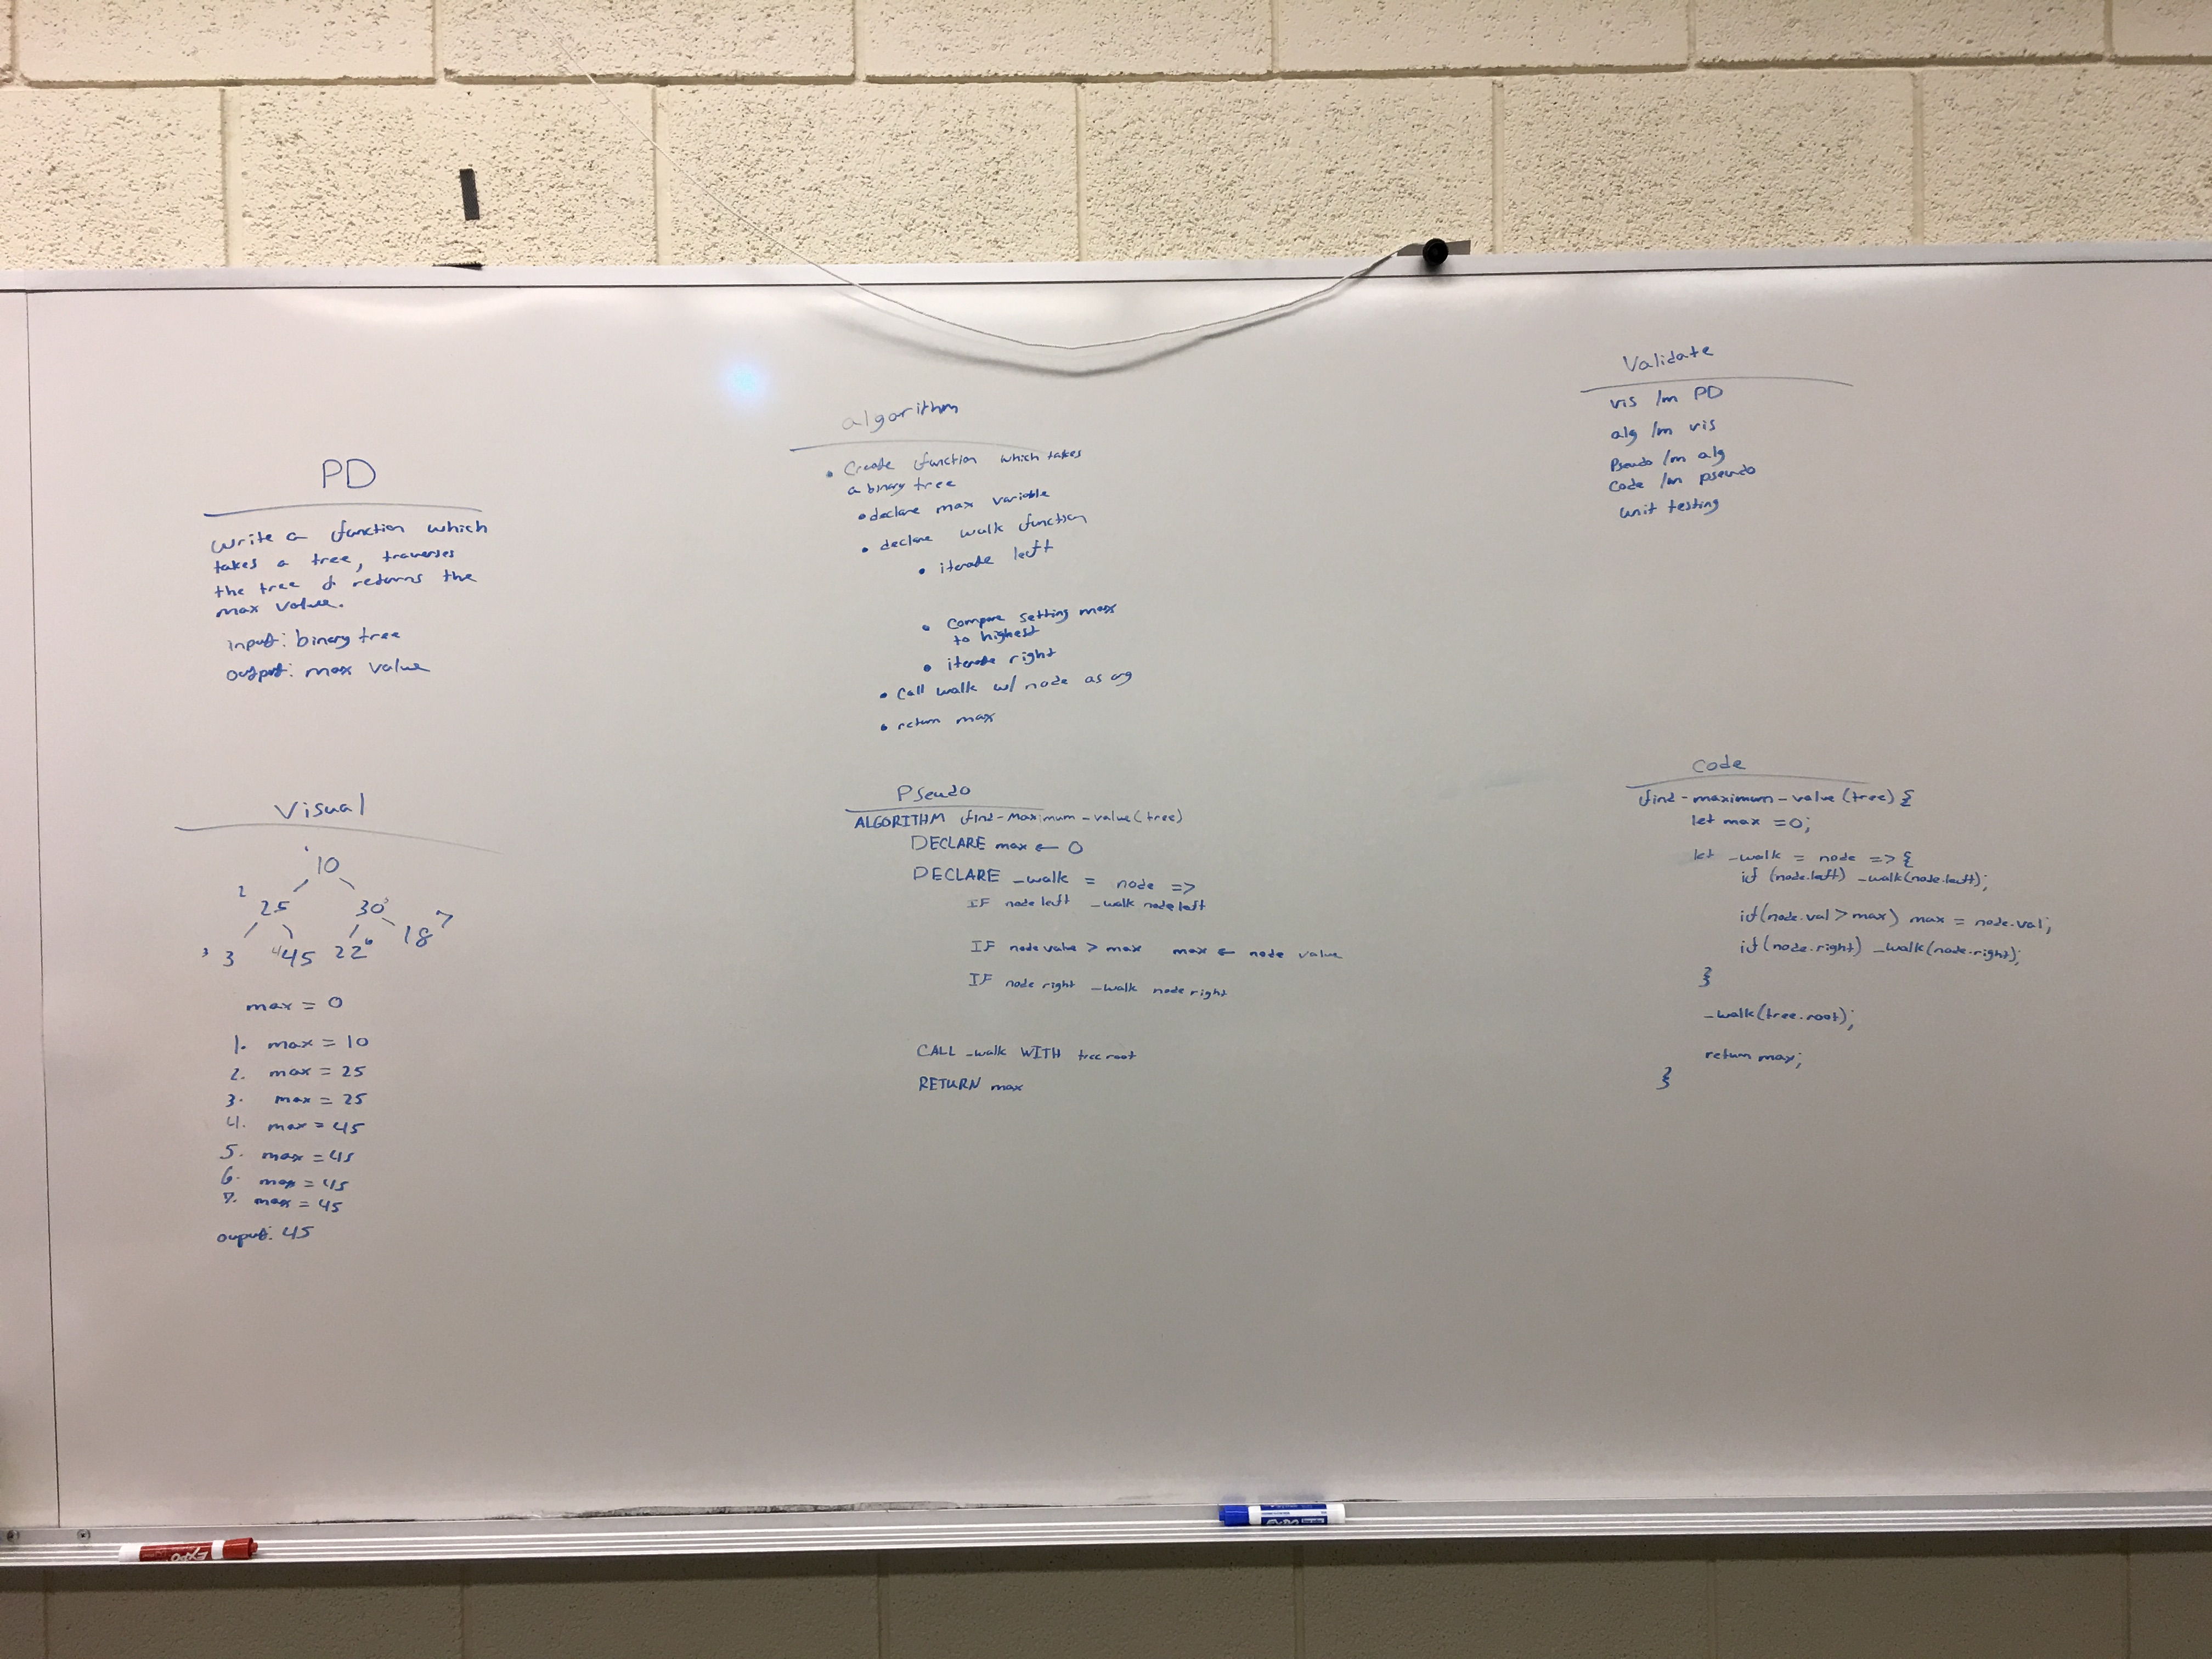 PD
write a function which
takes a tree, traverses
the tree & returns the
max value.
input: binary tree
output: max value
Visual
1
10
2
25
30 5
3 3
4 45
22 6
18 7
max = 0
1. max = 10
2. max = 25
3. max = 25
4. max = 45
5. max = 45
6. max = 45
7. max = 45
ouput: 45
algorithm
• Create function which takes
a binary tree
• declare max variable
• declare walk function
• iterate left
• Compare setting max
to highest
• iterate right
• Call walk w/ node as arg
• return max
Pseudo
ALGORITHM find-maximum-value(tree)
DECLARE max ← 0
DECLARE _walk = node =>
IF node left _walk node left
IF node value > max max ← node value
IF node right _walk node right
CALL _walk WITH tree root
RETURN max
Validate
vis /m PD
alg /m vis
Pseudo /m alg
Code /m pseudo
unit testing
Code
find-maximum-value(tree) {
let max = 0;
let _walk = node => {
if (node.left) _walk(node.left);
if(node.val > max) max = node.val;
if(node.right) _walk(node.right);
}
_walk(tree.root);
return max;
}
EXPO
EXPO